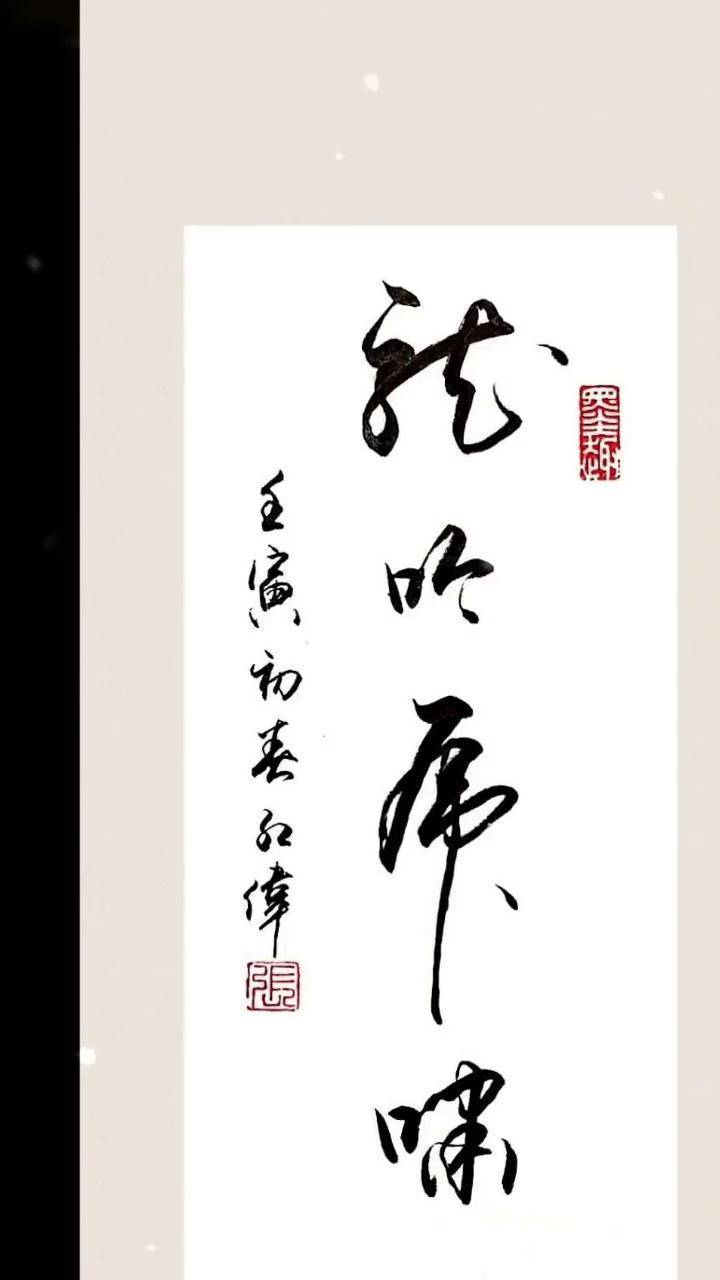 龍吟虎嘯
壬寅初春红偉
張